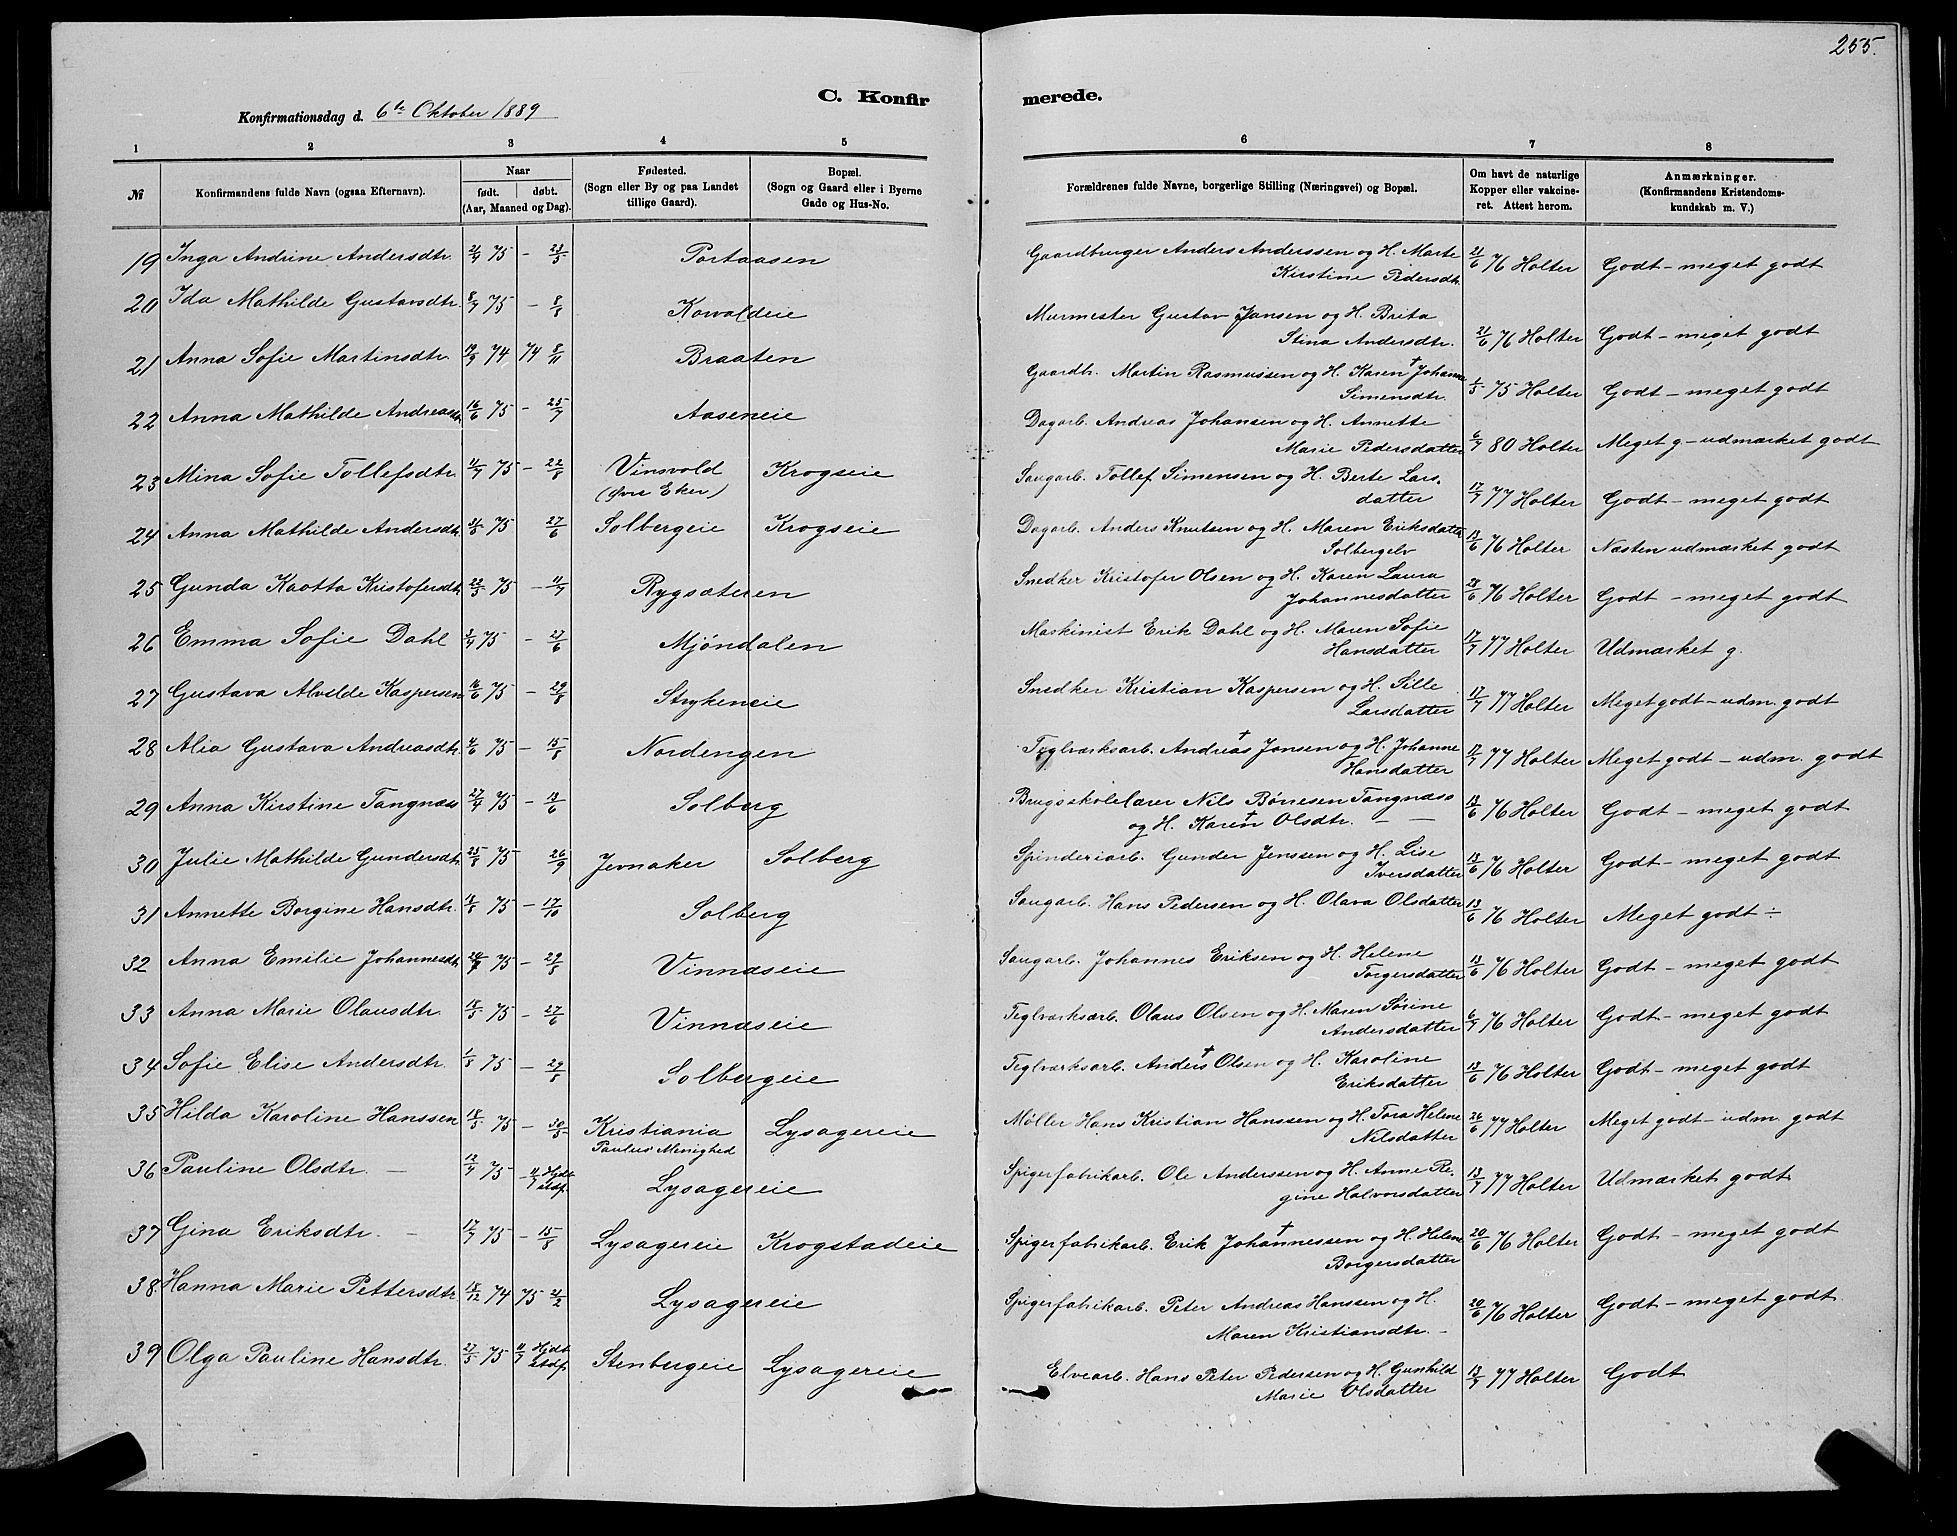 255.
C. Konfirmerede.
Konfirmationsdag d. 6te Oktober 1889
1 2 3 4 5 6 7 8
№
Konfirmandens fulde Navn (ogsaa Efternavn).
Naar
født. døbt.
(Aar, Maaned og Dag).
Fødested.
(Sogn eller By og paa Landet
tillige Gaard).
Bopæl.
(Sogn og Gaard eller i Byerne
Gade og Hus-No.
Forældrenes fulde Navne, borgerlige Stilling (Næringsvei) og Bopæl.
Om havt de naturlige
Kopper eller vakcine-
ret. Attest herom.
Anmærkninger.
(Konfirmandens Kristendoms-
kundskab m. V.)
19 Inga Andrine Andersdtr. 75 - 23/5 Portaasen Gaardbruger Anders Anderssen og H. Marte 21/6 76 Holter Godt - meget godt
Kirstine Pedersdtr.
20 Ida Mathilde Gustavsdtr. 8/7 75 - 8/8 Kovaldeie Murmester Gustav Jansen og H. Brita 21/6 76 Holter Godt - meget godt
Stina Andersdtr.
21 Anna Sofie Martinsdtr. 19/9 74 74 8/11 Braaten Gaardb. Martin Rasmussen og H. Karen † Johanne 75 Holter Godt - meget godt
Simensdtr.
22 Anna Mathilde Andreasdtr 16/6 75 - 25/7 Aaseneie Dagarb. Andreas Johansen og H. Annette 6/7 80 Holter Meget g - udmærket godt
Marie Pedersdatter
23 Mina Sofie Tollefsdtr. 11/7 75 - 22/8 Vinsvold Krogseie Saugarb. Tollef Simensen og H. Berte Lars- 17/7 77 Holter Godt - meget godt
(øvre Eker) datter
24 Anna Mathilde Andersdtr. 75 27/6 Solbergeie Krogseie Dagarb. Anders Knutsen og H. Maren Eriksdatter 13/6 76 Holter Næsten udmærket godt
Solbergelv
25 Gunda Kaotta Kristofersdtr 75 - 11/7 Rygsæteren Snedker Kristofer Olsen og H. Karen Laura 76 Holter Godt - meget godt
Johannesdatter
26 Emma Sofie Dahl 3/4 75 - 27/6 Mjøndalen Maskinist Erik Dahl og H. Maren Sofie 17/7 77 Holter Udmærket g.
Hansdatter
27 Gustava Alvilde Kaspersen 16/6 75 - 29/8 Strykeneie Snedker Kristian Kaspersen og H. Sille 17/7 77 Holter Meget godt - udm. godt
Larsdatter
28 Alia Gustava Andreasdtr. 75 - 15/8 Nordengen Teglværksarb. Andreas † Jansen og H. Johanne 17/7 77 Holter Meget godt - udm. godt
Hansdatter
29 Anna Kirstine Tangnæss 27/4 75 - 13/6 Solberg Brugsskolelærer Nils Bønesen Tangnæss 13/6 76 Holter Godt - meget godt
og H. Karen † Olsdtr. - -
30 Julie Mathilde Gundersdtr. 25/8 75 26/9 Jevnaker Solberg Spinderiarb. Gunder Jenssen og H. Lise 13/6 76 Holter Godt - meget godt
Iversdatter
31 Annette Borgine Hansdtr. 18/8 75 - 17/10 Solberg Saugarb. Hans Pedersen og H. Olava Olsdatter 13/6 76 Holter Meget godt ÷
32 Anna Emilie Johannesdtr. 75 - 29/8 Vinnæseie Saugarb. Johannes Eriksen og H. Helene 13/6 76 Holter Godt - meget godt
Torgersdatter
33 Anna Marie Olausdtr. 18/5 75 - 27/6 Vinnæseie Teglværksarb. Olaus Olsen og H. Maren Sørine 6/7 76 Holter Godt - meget godt
Andersdatter
34 Sofie Elise Andersdtr. 1/8 75 - 29/8 Solbergeie Teglværksarb. Anders † Olsen og H. Karoline 13/6 76 Holter Godt - meget godt
Eriksdatter
35 Hilda Karoline Hanssen 75 - 30/5 Kristiania Lysagereie Møller Hans Kristian Hanssen og H. Tora Helene 26/6 77 Holter Meget godt - udm. godt
Paulus Menighed Nilsdatter
36 Pauline Olsdtr. - 12/4 75 11/7 Hjdt. stdf. Lysagereie Spigerfabrikarb. Ole Anderssen og H. Anne Re- 13/7 77 Holter Udmærket godt
gine Halvorsdatter
37 Gina Eriksdtr. - 17/7 75 - 15/8 Lysagereie Krogstadeie Spigerfabrikarb. Erik Johannessen † og H. Helene 20/6 76 Holter Godt - meget godt
Borgersdatter
38. Hanna Marie Pettersdtr 18/12 74 75 21/2 Lysagereie Spigerfabrikarb. Peter Andreas Hanssen og H. 20/6 76 Holter Godt - meget godt
Maren Kristiansdtr. -
39 Olga Pauline Hansdtr. 27/5 75 11/7 Hjdt. stdf. Stenbergeie Lysagereie Elvearb. Hans Peter Pedersen og H. Gunhild 13/7 77 Holter Godt
Marie Olsdatter